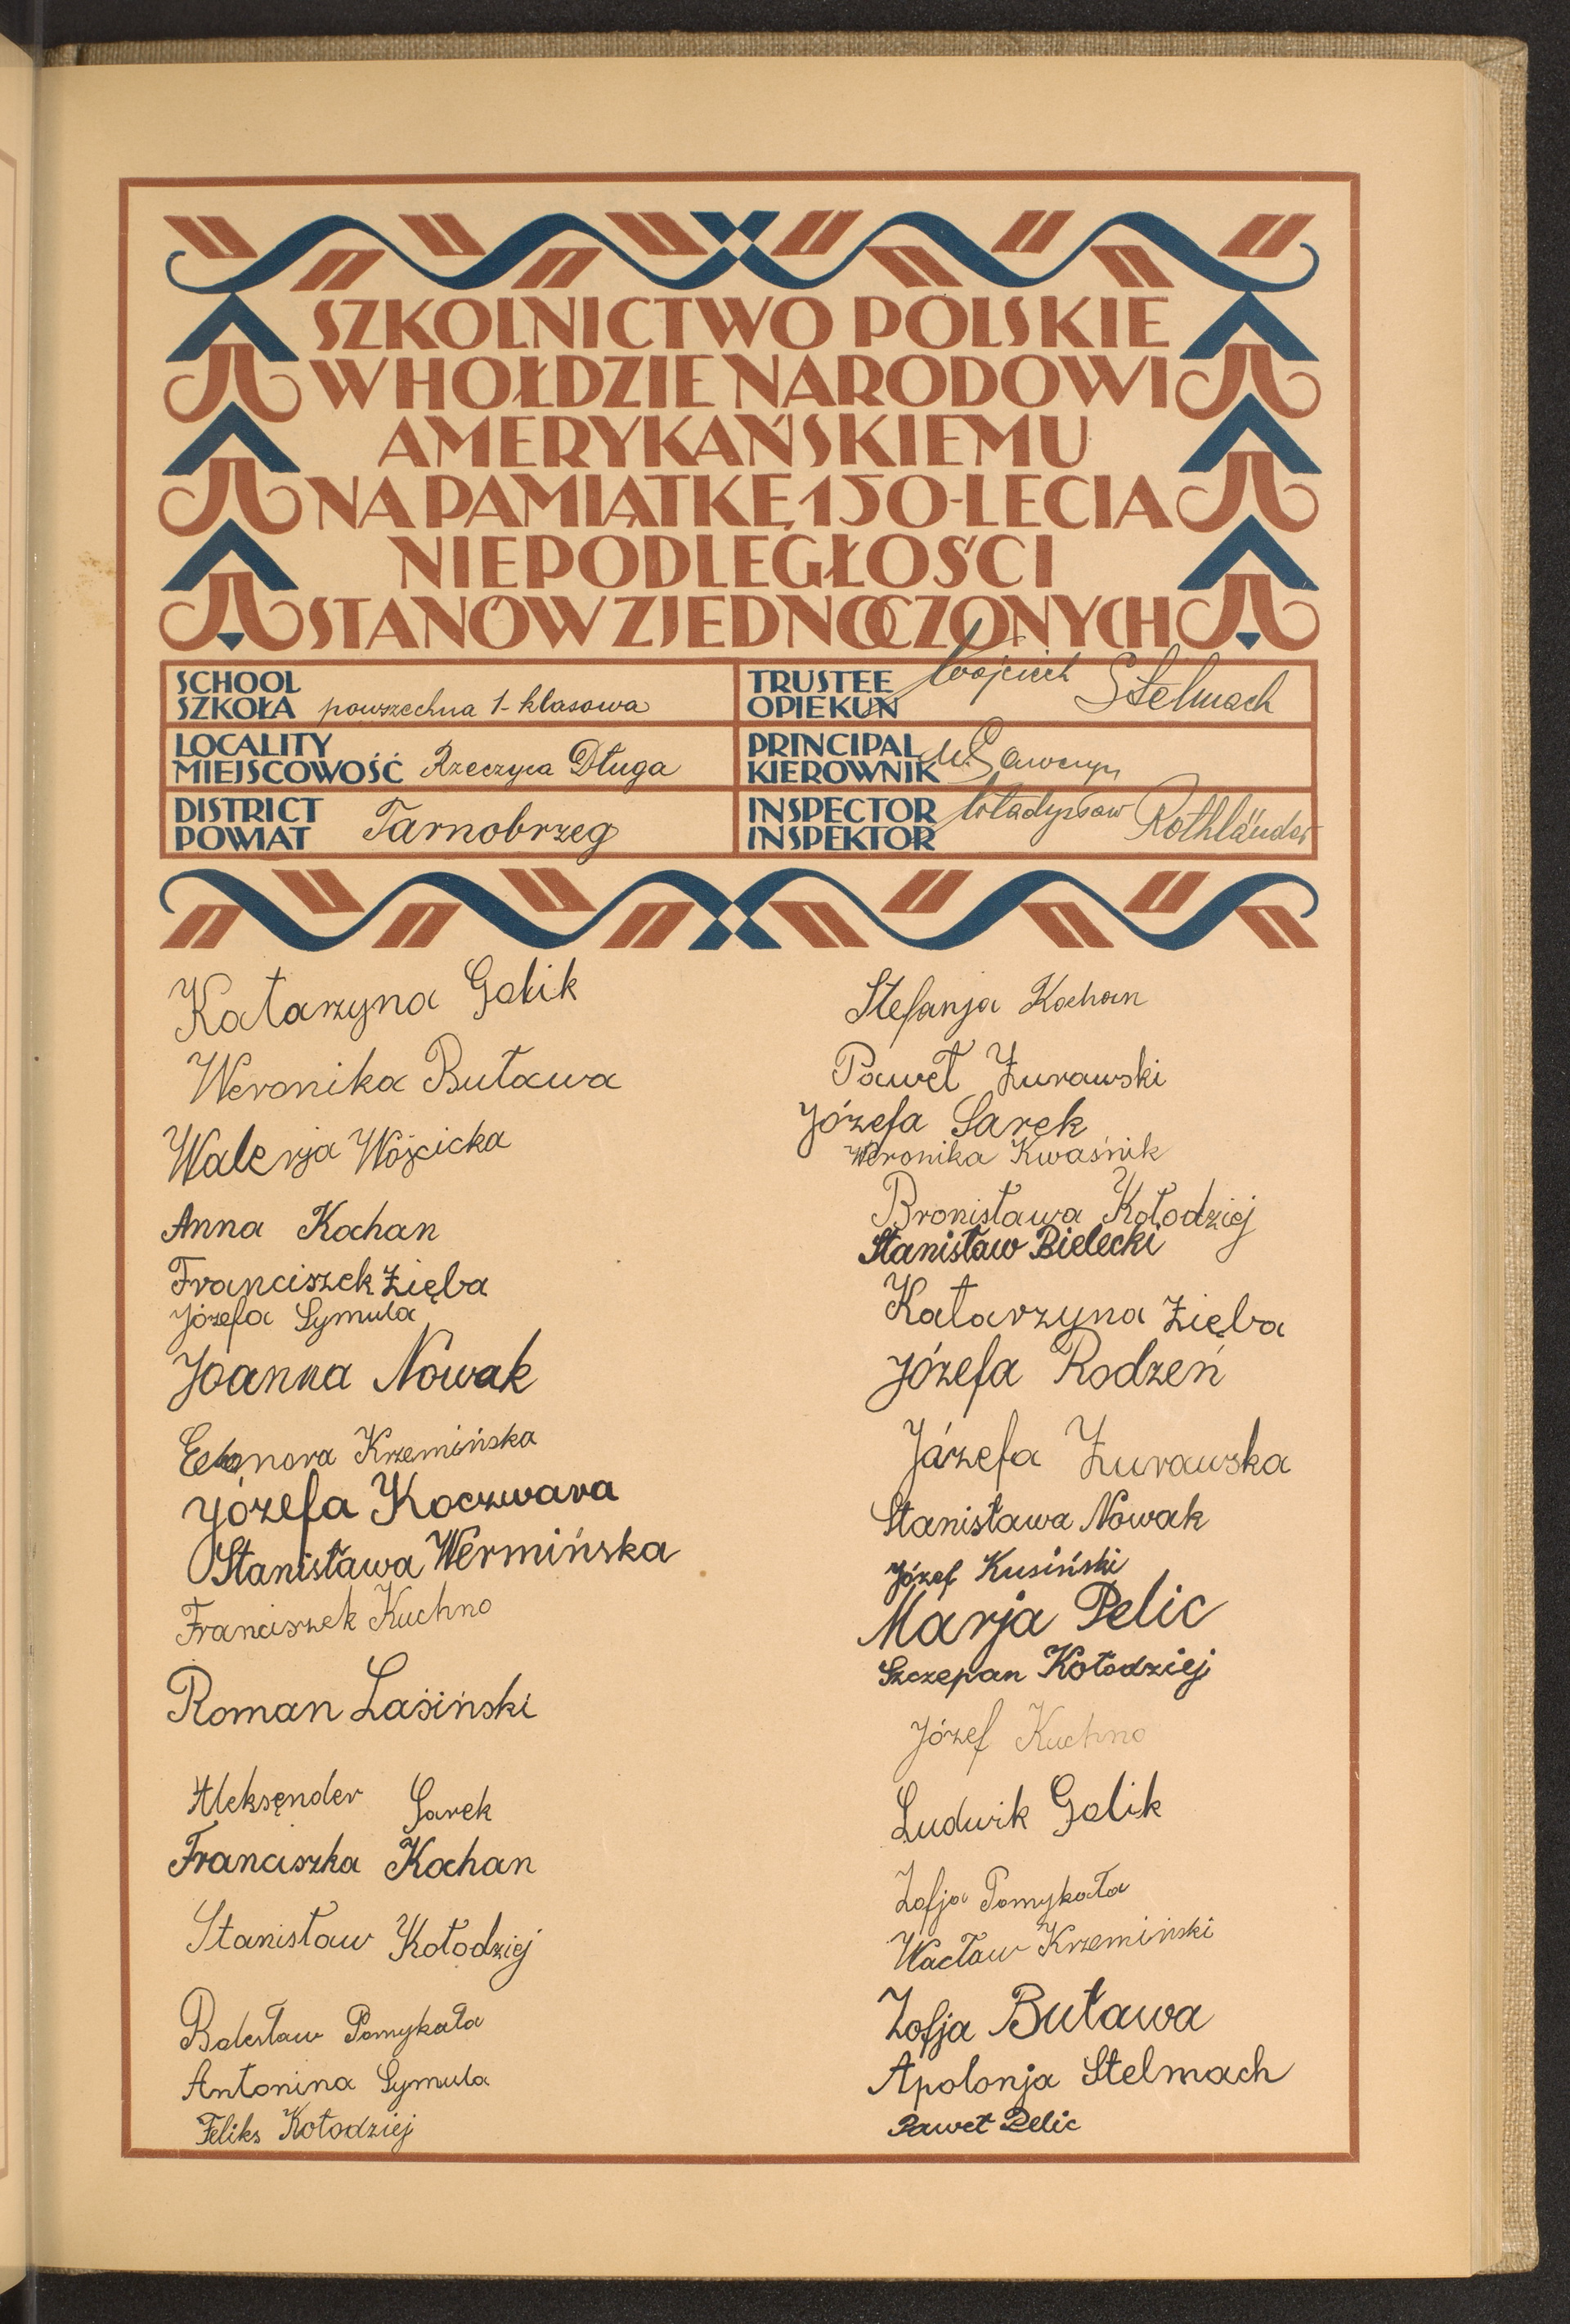 SZKOLNICTWO POLSKIE
W HOŁDZIE NARODOWI
AMERYKAŃSKIEMU
NA PAMIĄTKĘ 150-LECIA
NIEPODLEGŁOŚCI
STANÓW ZJEDNOCZONYCH
SCHOOL
SZKOŁA powszechna 1-klasowa
LOCALITY
MIEJSCOWOŚĆ Rzeczyca Długa
DISTRICT
POWIAT Tarnobrzeg
TRUSTEE
OPIEKUN Wojciech Stelmach
PRINCIPAL
KIEROWNIK
INSPECTOR
INSPEKTOR Władysław Rothländer
Katarzyna Golik
Weronika Butawa
Walerja Wójcicka
Anna Kochan
Franciszek Zięba
Józefa Symula
Joanna Nowak
Krzemińska
Józefa Koczwara
Stanisława Wermińska
Franciszek Kuchno
Roman Lasiński
Aleksęnder Sarek
Franciszka Kochan
Stanisław Kołodziej
Bolesław Pomykała
Antonina Symula
Feliks Kołodziej
Stefanja Kochan
Paweł Żurawski
Józefa Sarek
Weronika Kwaśnik
Bronisława Kołodziej
Stanisław Bielecki
Katarzyna Zięba
Józefa Rodzeń
Józefa Żurawska
Stanisława Nowak
Józef Kusiński
Marja Pelic
Szczepan Kołodziej
Józef Kuchno
Ludwik Golik
Zofja Pomykała
Wacław Krzemiński
Zofja Butawa
Apolonja Stelmach
Paweł Pelic